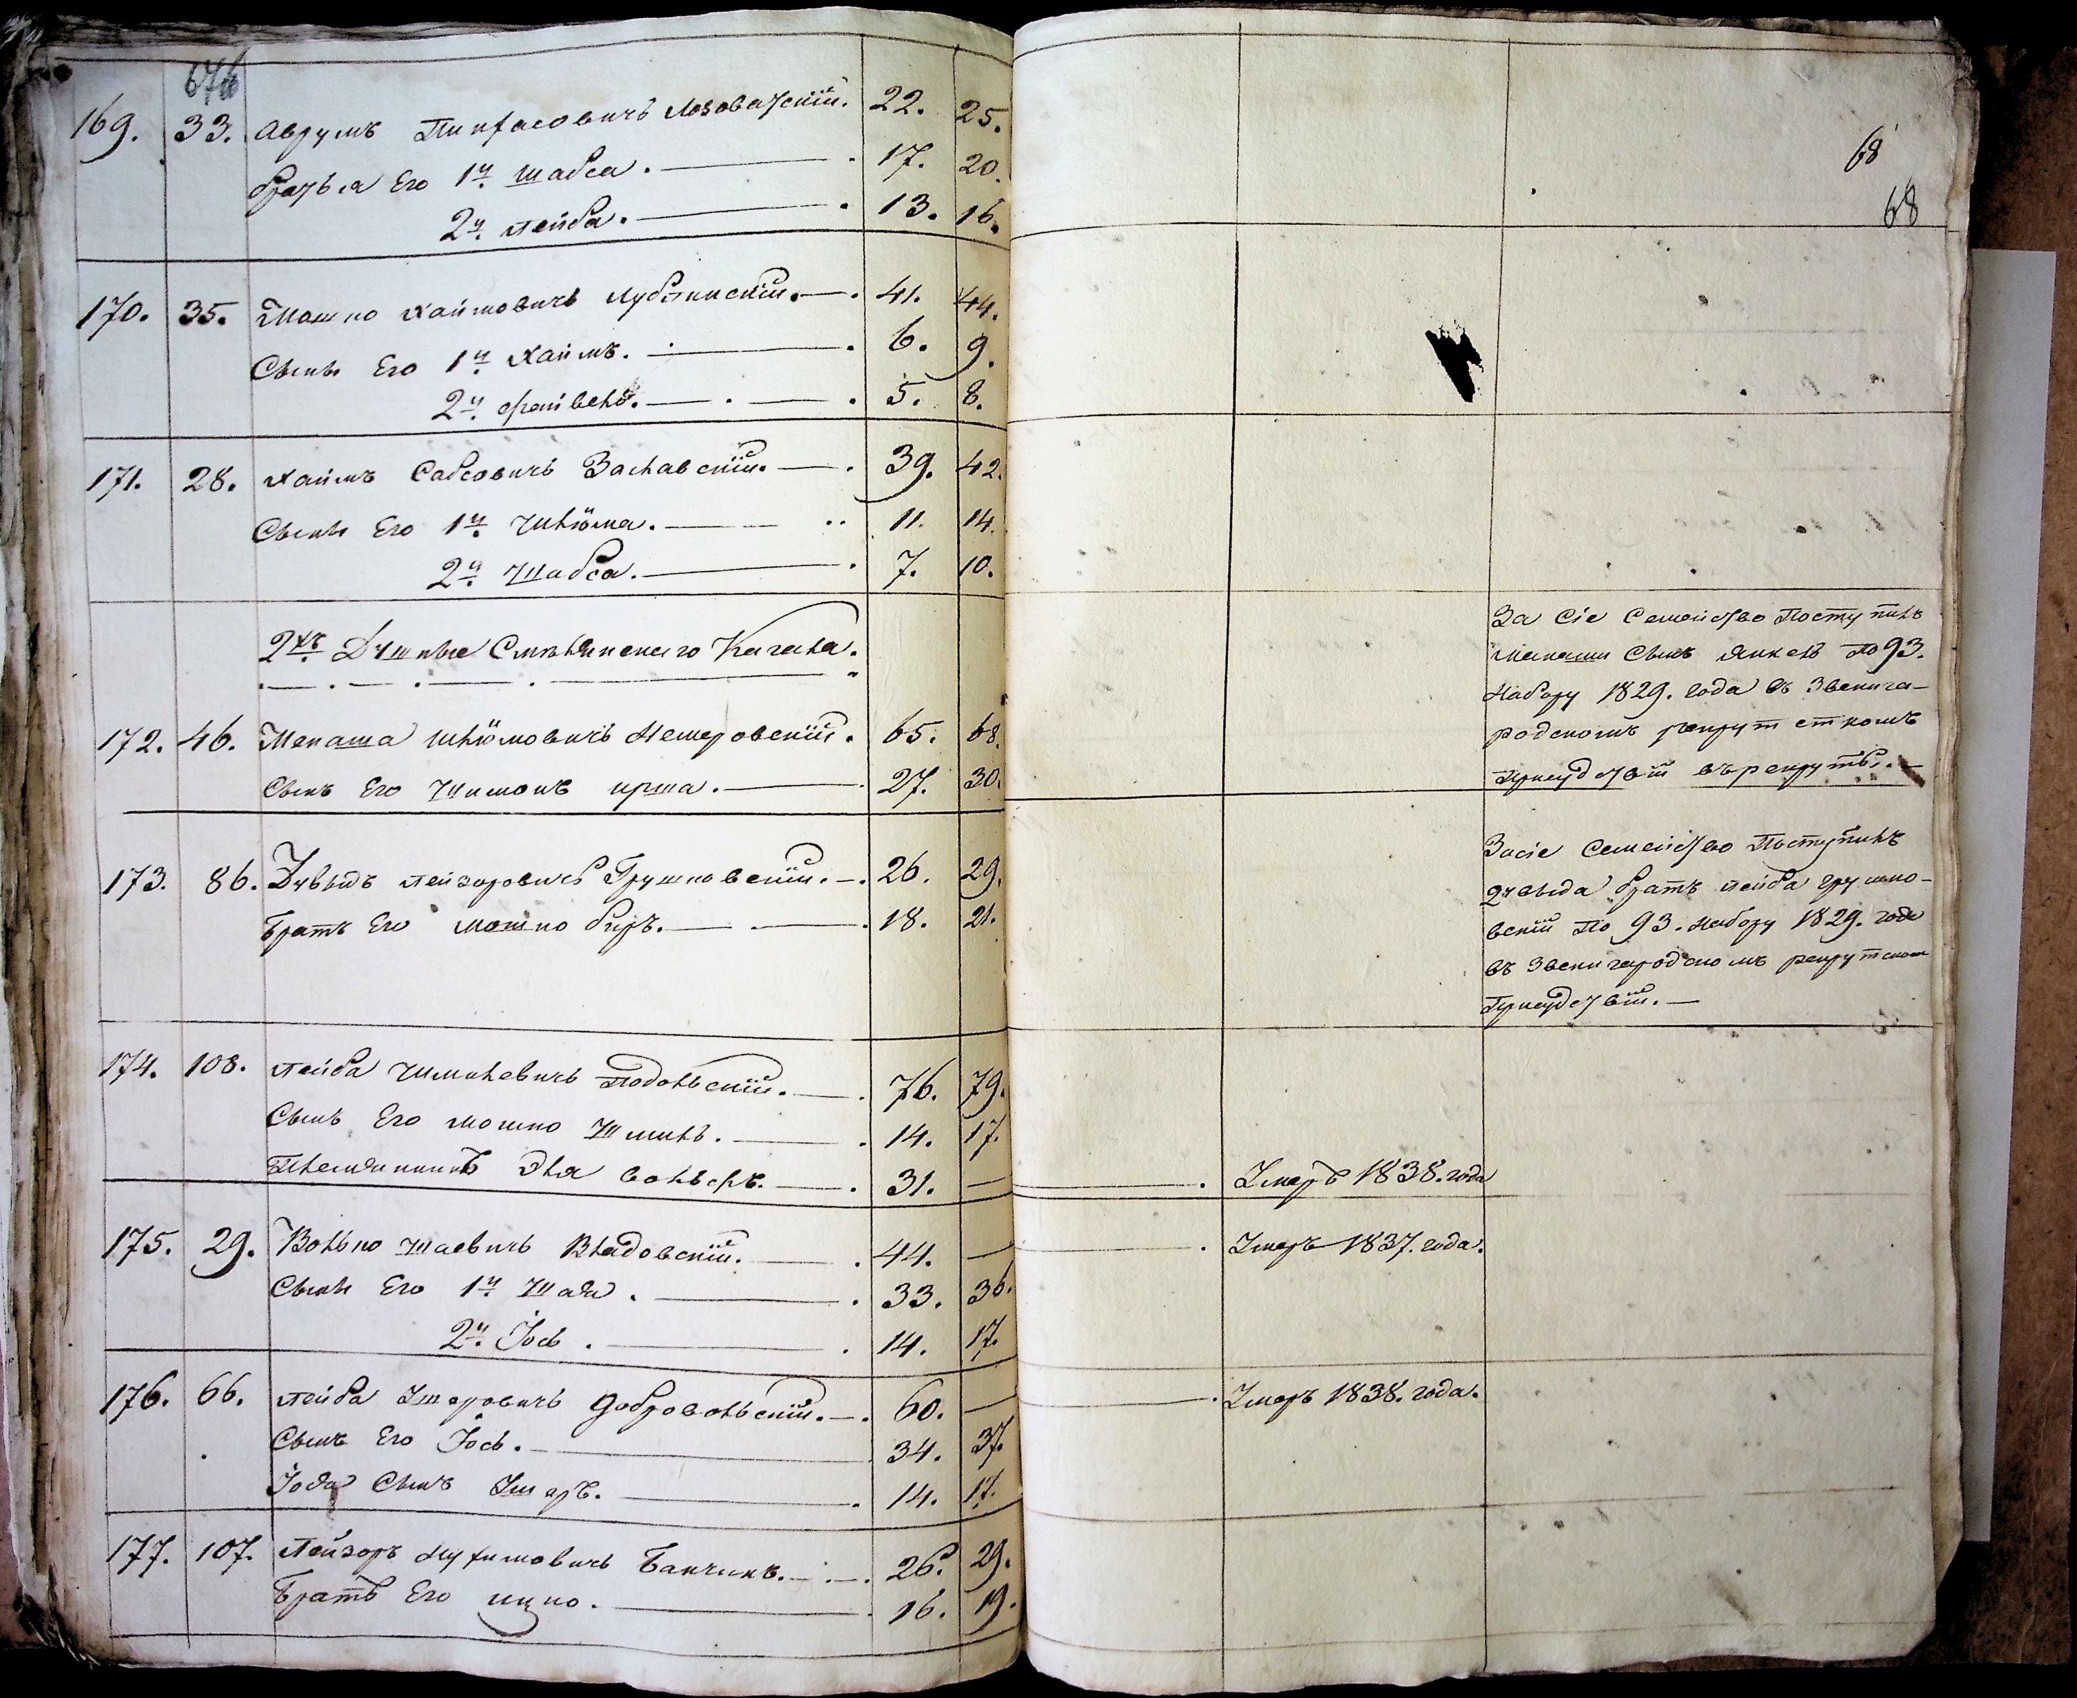 67об
169. 33. Аврумъ Пинхасовичъ Лозоватскій. 22. 25.
братья Его 1й Шабса. 17. 20.
2й Лейба. 13. 16.
170. 35. Мошко Хаимовичъ Лубянискій. 41. 44.
Сыны Его 1й Хаимъ. 6. 9.
2й Фрайвель. 5. 8.
171. 28. Хаимъ Сабсовичъ Заславскій. 39. 42.
Сыны Его 1й Шлiома. 11. 14.
2й Шабса. 7. 10.
2хъ Душные Смѣлянскаго Кагала.
172. 46. Менаша Шлiомовичъ Немеровскій. 65. 68.
Сынъ Его Шимонъ ирша. 27. 30.
173. 86. Дувыдъ Лейзоровичъ Грушковскій. 26. 29.
Братъ Его Мошко беръ. 18. 21.
174. 108. Лейба Шмилевичъ Подольскій. 76. 79.
Сынъ Его Мошко Шмиль. 14. 17.
Племянникъ Эля Вольфъ. 31. —
175. 29. Волько Шаевичъ Владовскій. 44. —
Сыны Его 1й Шая. 33. 36.
2й Іось. 14. 17.
176. 66. Лейба Умеровичъ Добровольскій. 60. —
Сынъ Его Іось. 34. 37.
Іося Сынъ 14. 17.
177. 107. Лейзоръ Нухимовичъ Банчикъ. 26. 29.
Братъ Его ицко. 16. 19.
68
68
За Сіе Семейство Поступилъ
Менаши Сынъ Янкель По 93.
Набору 1829. года въ Звенига-
родскомъ рекрутскомъ
Присудствіи въ рекруты.
За сіе Семейство Поступилъ
дувыда братъ лейба грушко-
вскій По 93. Набору 1829. года
въ Звенигародскомъ рекрутском
Присудствіи.
Умеръ 1838. года
Умеръ 1837. года.
Умеръ 1838. года.